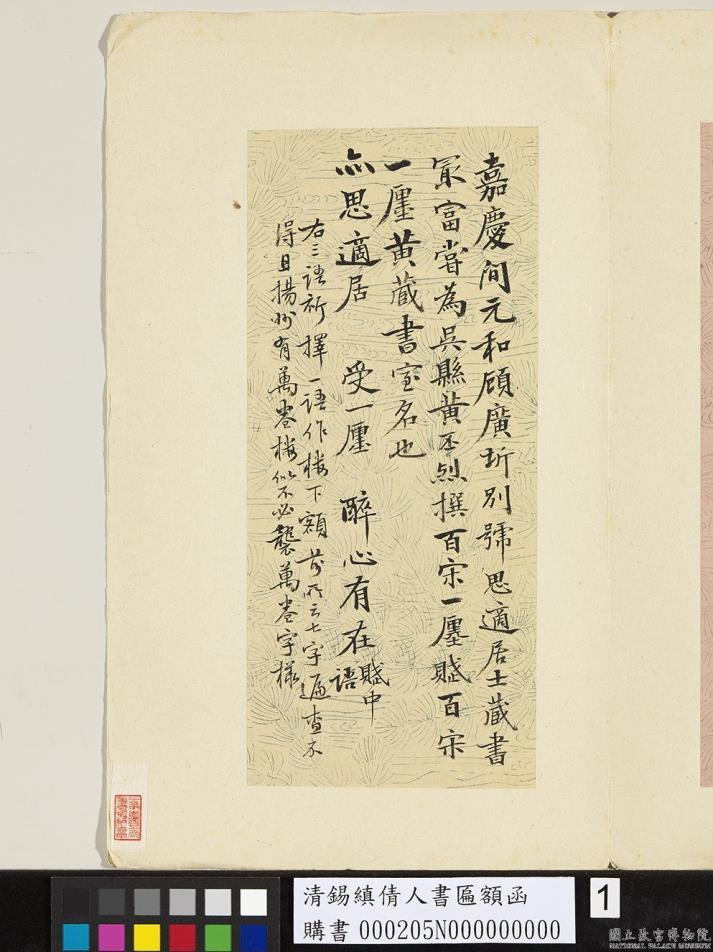 嘉慶間元和顧廣圻別號思適居士藏書
冣富嘗為吳縣黃丕烈撰百宋一廛賦百宋
一廛黃藏書室名也
亦思適居　受一廛　醉心有在賦中語
右三語祈擇一語作樓下額前所云七字遍查不
得且揚州有萬卷樓似不必襲萬卷字樣
清錫縝倩人書匾額函
購書 000205N000000000
1
國立故宮博物院
NATIONAL PALACE MUSEUM